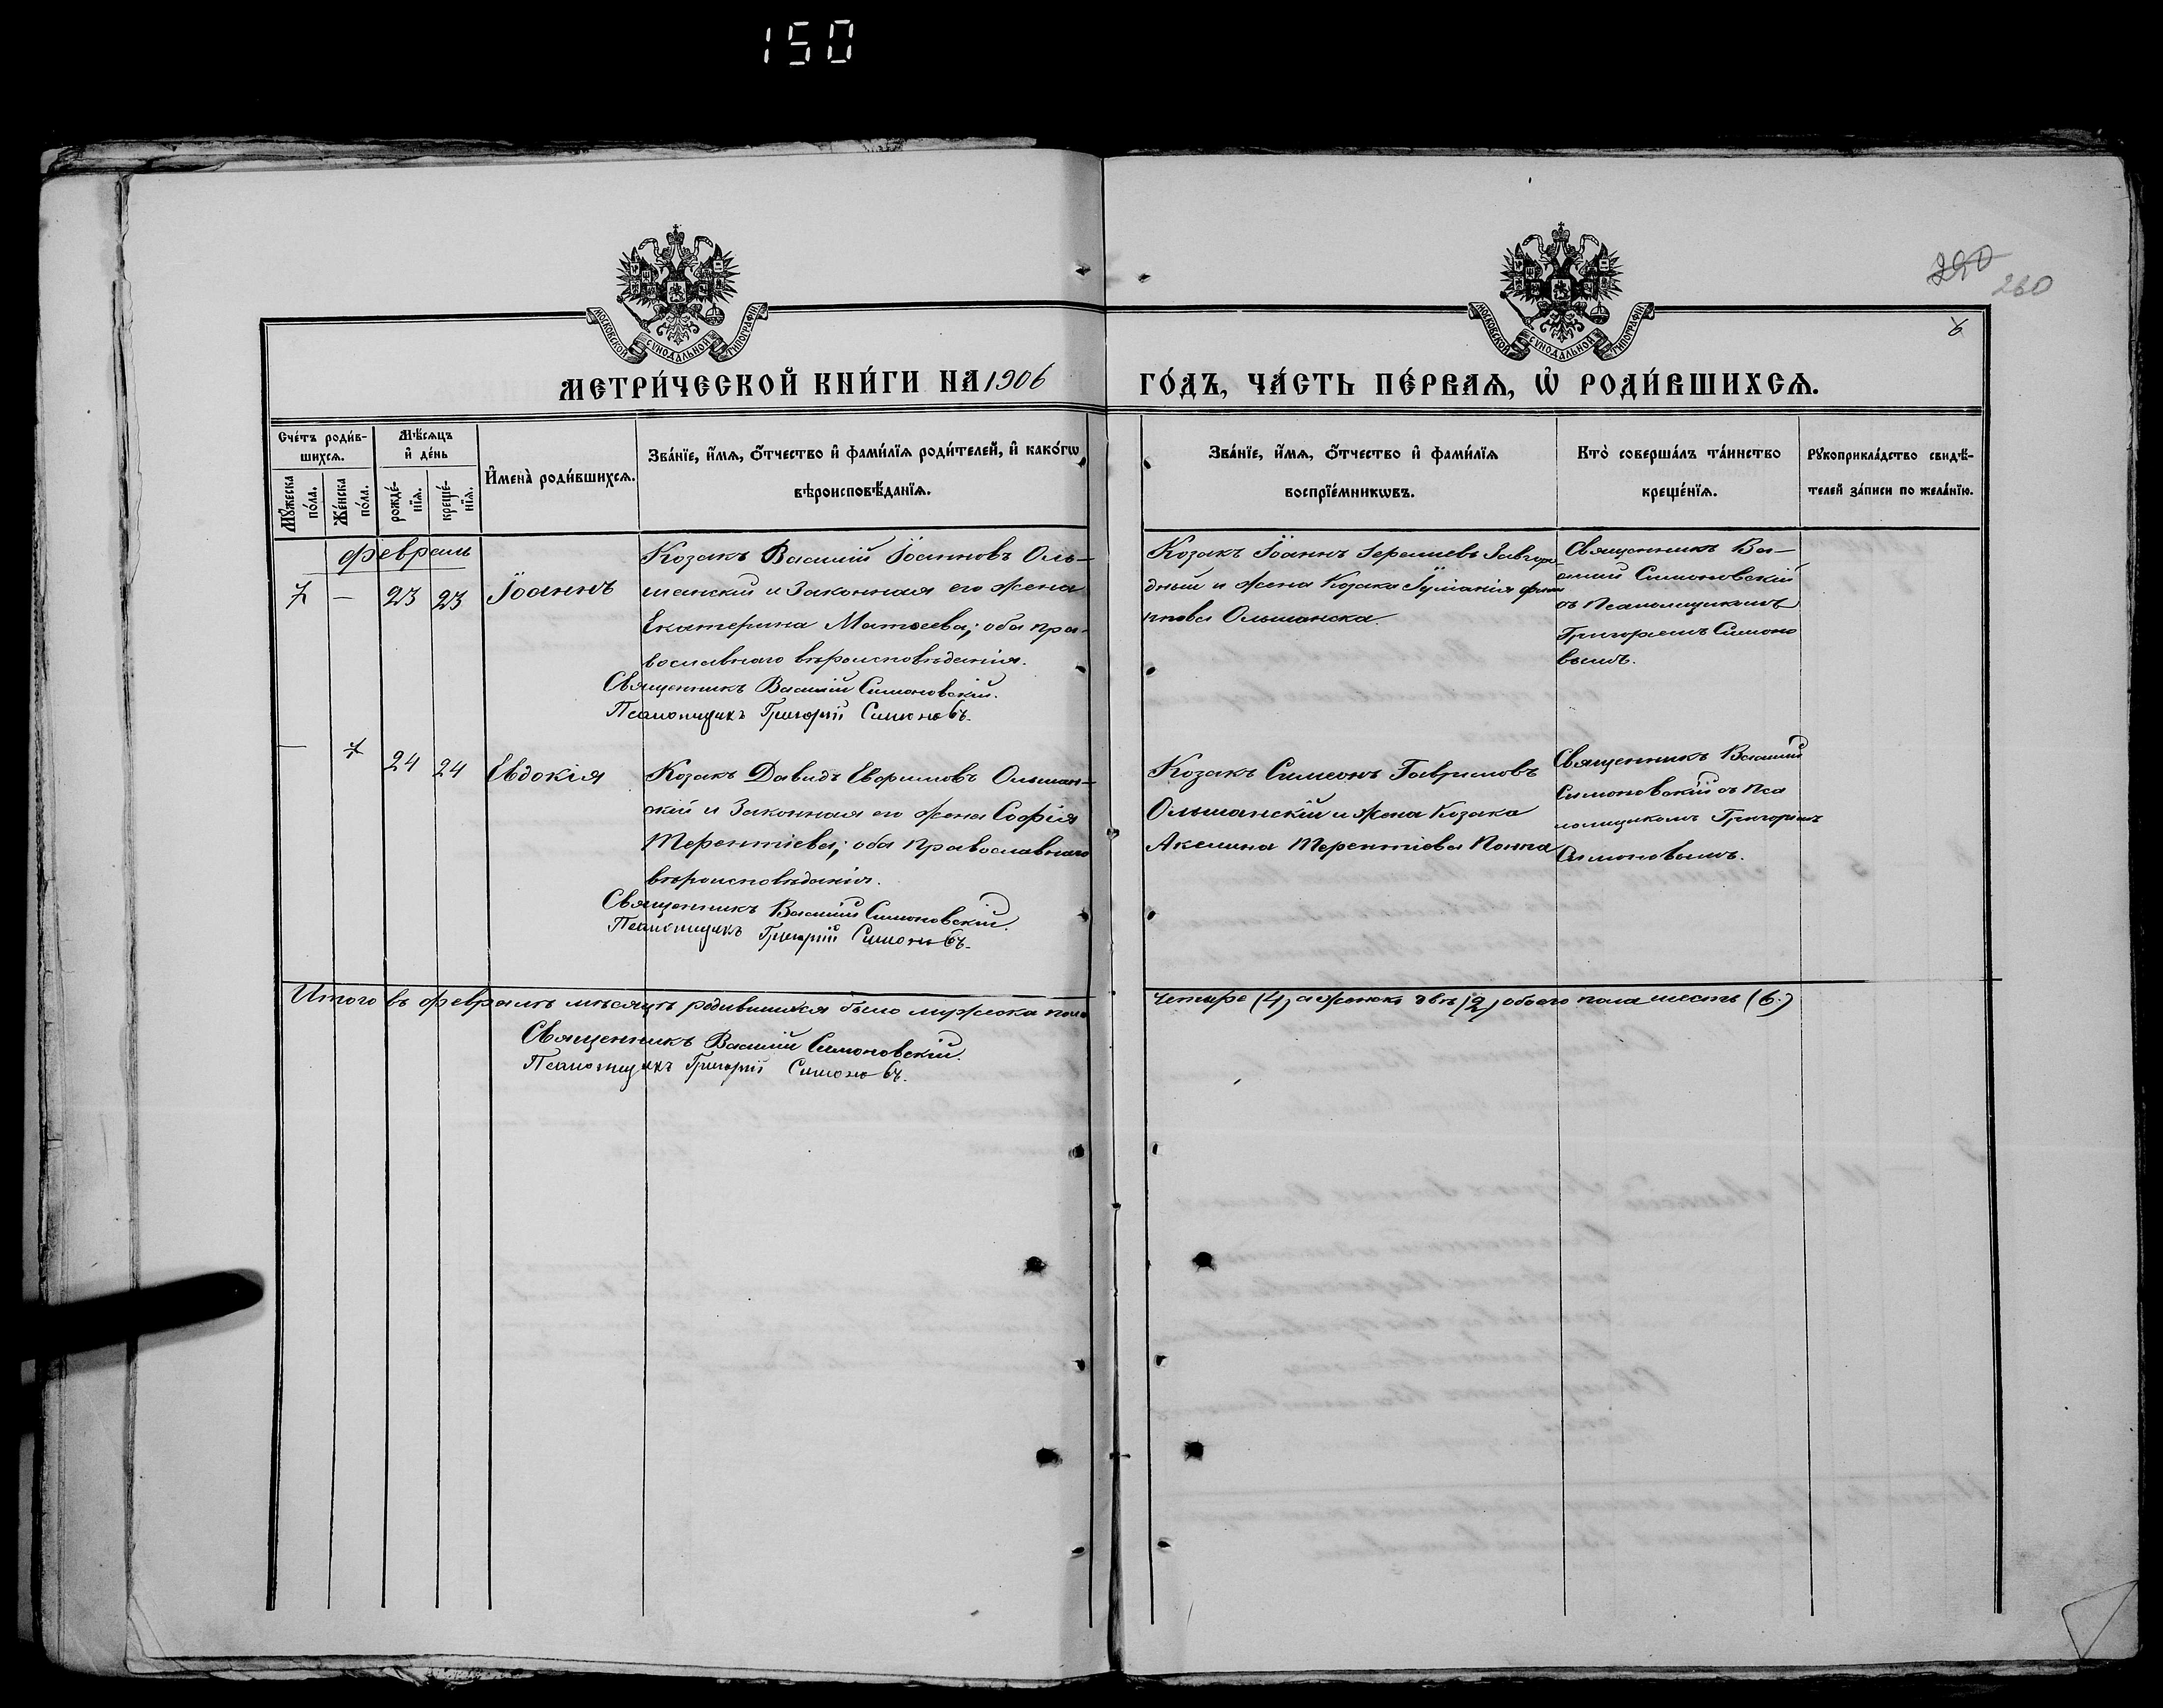 150
290
260
6
МОСКОВСКОЙ СУНОДАЛЬНОЙ ТИПОГРАФІИ
МОСКОВСКОЙ СУНОДАЛЬНОЙ ТИПОГРАФІИ
МЕТРИ́ЧЕСКОЙ КНИ́ГИ НА 1906
ГО́ДЪ, ЧА́СТЬ ПЕ́РВАѦ, Ѡ҆ РОДИ́ВШИХСѦ.
Сче́тъ роди́в-
шихсѧ.
Мꙋжеска по́ла.
Же́нска по́ла.
Мѣ́сѧцъ
и҆ де́нь
рожде́-
нїѧ.
креще́-
нїѧ.
И҆мена̀ роди́вшихсѧ.
Зва́нїе, и҆́мѧ, ѻ҆́тчество и҆ фами́лїѧ роди́телей, и҆ како́гѡ
вѣроисповѣ́данїѧ.
Зва́нїе, и҆́мѧ, ѻ҆́тчество и҆ фами́лїѧ
воспрїе́мникѡвъ.
Кто̀ соверша́лъ та́инство
креще́нїѧ.
Рꙋкоприкла́дство свидѣ́-
телей за́писи по жела́нїю.
Февраль
7 — 23 23 Іоаннъ
Козакъ Василій Іоанновъ Оль-
шанскій и Законная его жена
Екатерина Матѳеева; оба пра-
вославнаго вѣроисповѣданія.
Священникъ Василій Симоновскій.
Псаломщикъ Григорій Симоновъ.
Козакъ Іоаннъ Завгоро-
дный и жена Козака
Ольшанска.
Священникъ Ва-
силій Симоновскій
съ Псаломщикомъ
Григоріемъ Симоно
вымъ.
— 24 24 Евдокія
Козакъ Давидъ Евфимовъ Ольшан-
скій и Законная его жена Софія
Терентіева; оба Православнаго
вѣроисповѣданія.
Священникъ Василій Симоновскій.
Псаломщикъ Григорій Симоновъ.
Козакъ Симеонъ Гавриловъ
Ольшанскій и жена Козака
Акилина Терентіева
Священникъ Василій
Симоновскій съ Пса
ломщикомъ Григоріемъ
Симоновымъ.
Итого въ Февралѣ мѣсяцѣ родившихся было мужеска пола
четыре (4) а женск. двѣ (2) обоего пола шесть (6.)
Священникъ Василій Симоновскій.
Псаломщикъ Григорій Симоновъ.